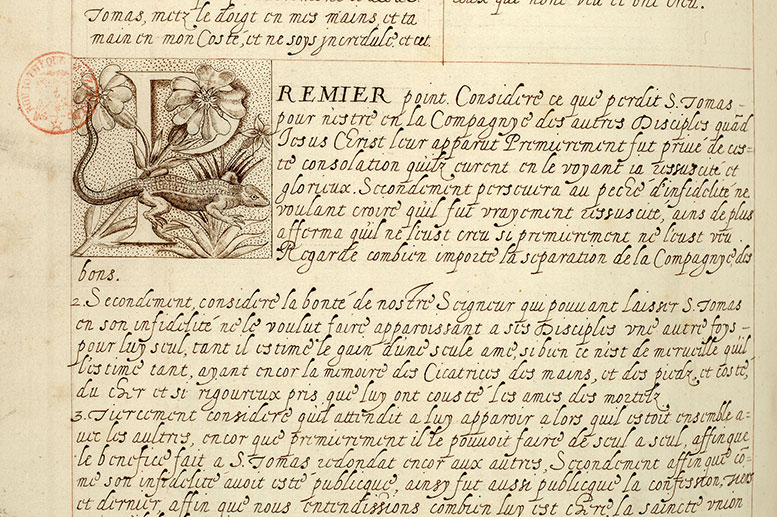 Tomas, metz le doigt en mes mains, et ta
main en mon Costé, et ne soys incredule. et cet.
ceux que nont veu et ont creu.
PREMIER point. Considere ce que perdit S. Tomas
pour nestre en la Compagnye des autres Disciples quãd
Jesus Christ leur apparut Premierement fut privé de ces-
te consolation quilz eurent en le voyant ia ressuscité et
glorieux. Secondement perseuera au peché d'infidelité ne
voulant croire quil fut vrayement ressuscité, ains de plus
afferma quil ne leust creu si premierement ne leust veu
Regarde combien importe la separation de la Compagnye, des
bons.
2. Secondement, considere la bonté de nostre Seigneur qui pouuant laisser S. Tomas
en son infidelité ne le voulut faire apparoissant a ses Disciples vne autre foys
pour luy seul, tant il estime le gain d'une seule ame, si bien ce nest de merueille quil
l'estime tant, ayant encor la memoire des Cicatrices des mains, et des piedz, et costé,
du cher et si rigoureux pris que luy ont cousté les ames des mortelz
3. Tiercement considere quil attendit a luy apparoir a lors quil estoit ensemble a-
uec les aultres, encor que premierement il le pouuoit faire de seul a seul, affinque
le benefice fait a S. Tomas redondat encor aux autres, Secondement affin que co-
me son infidelité auoit esté publicque, ainsy fut aussi publicque la confession, tiers
et dernier affin que nous entendissions combien luy est chere la saincte vnion